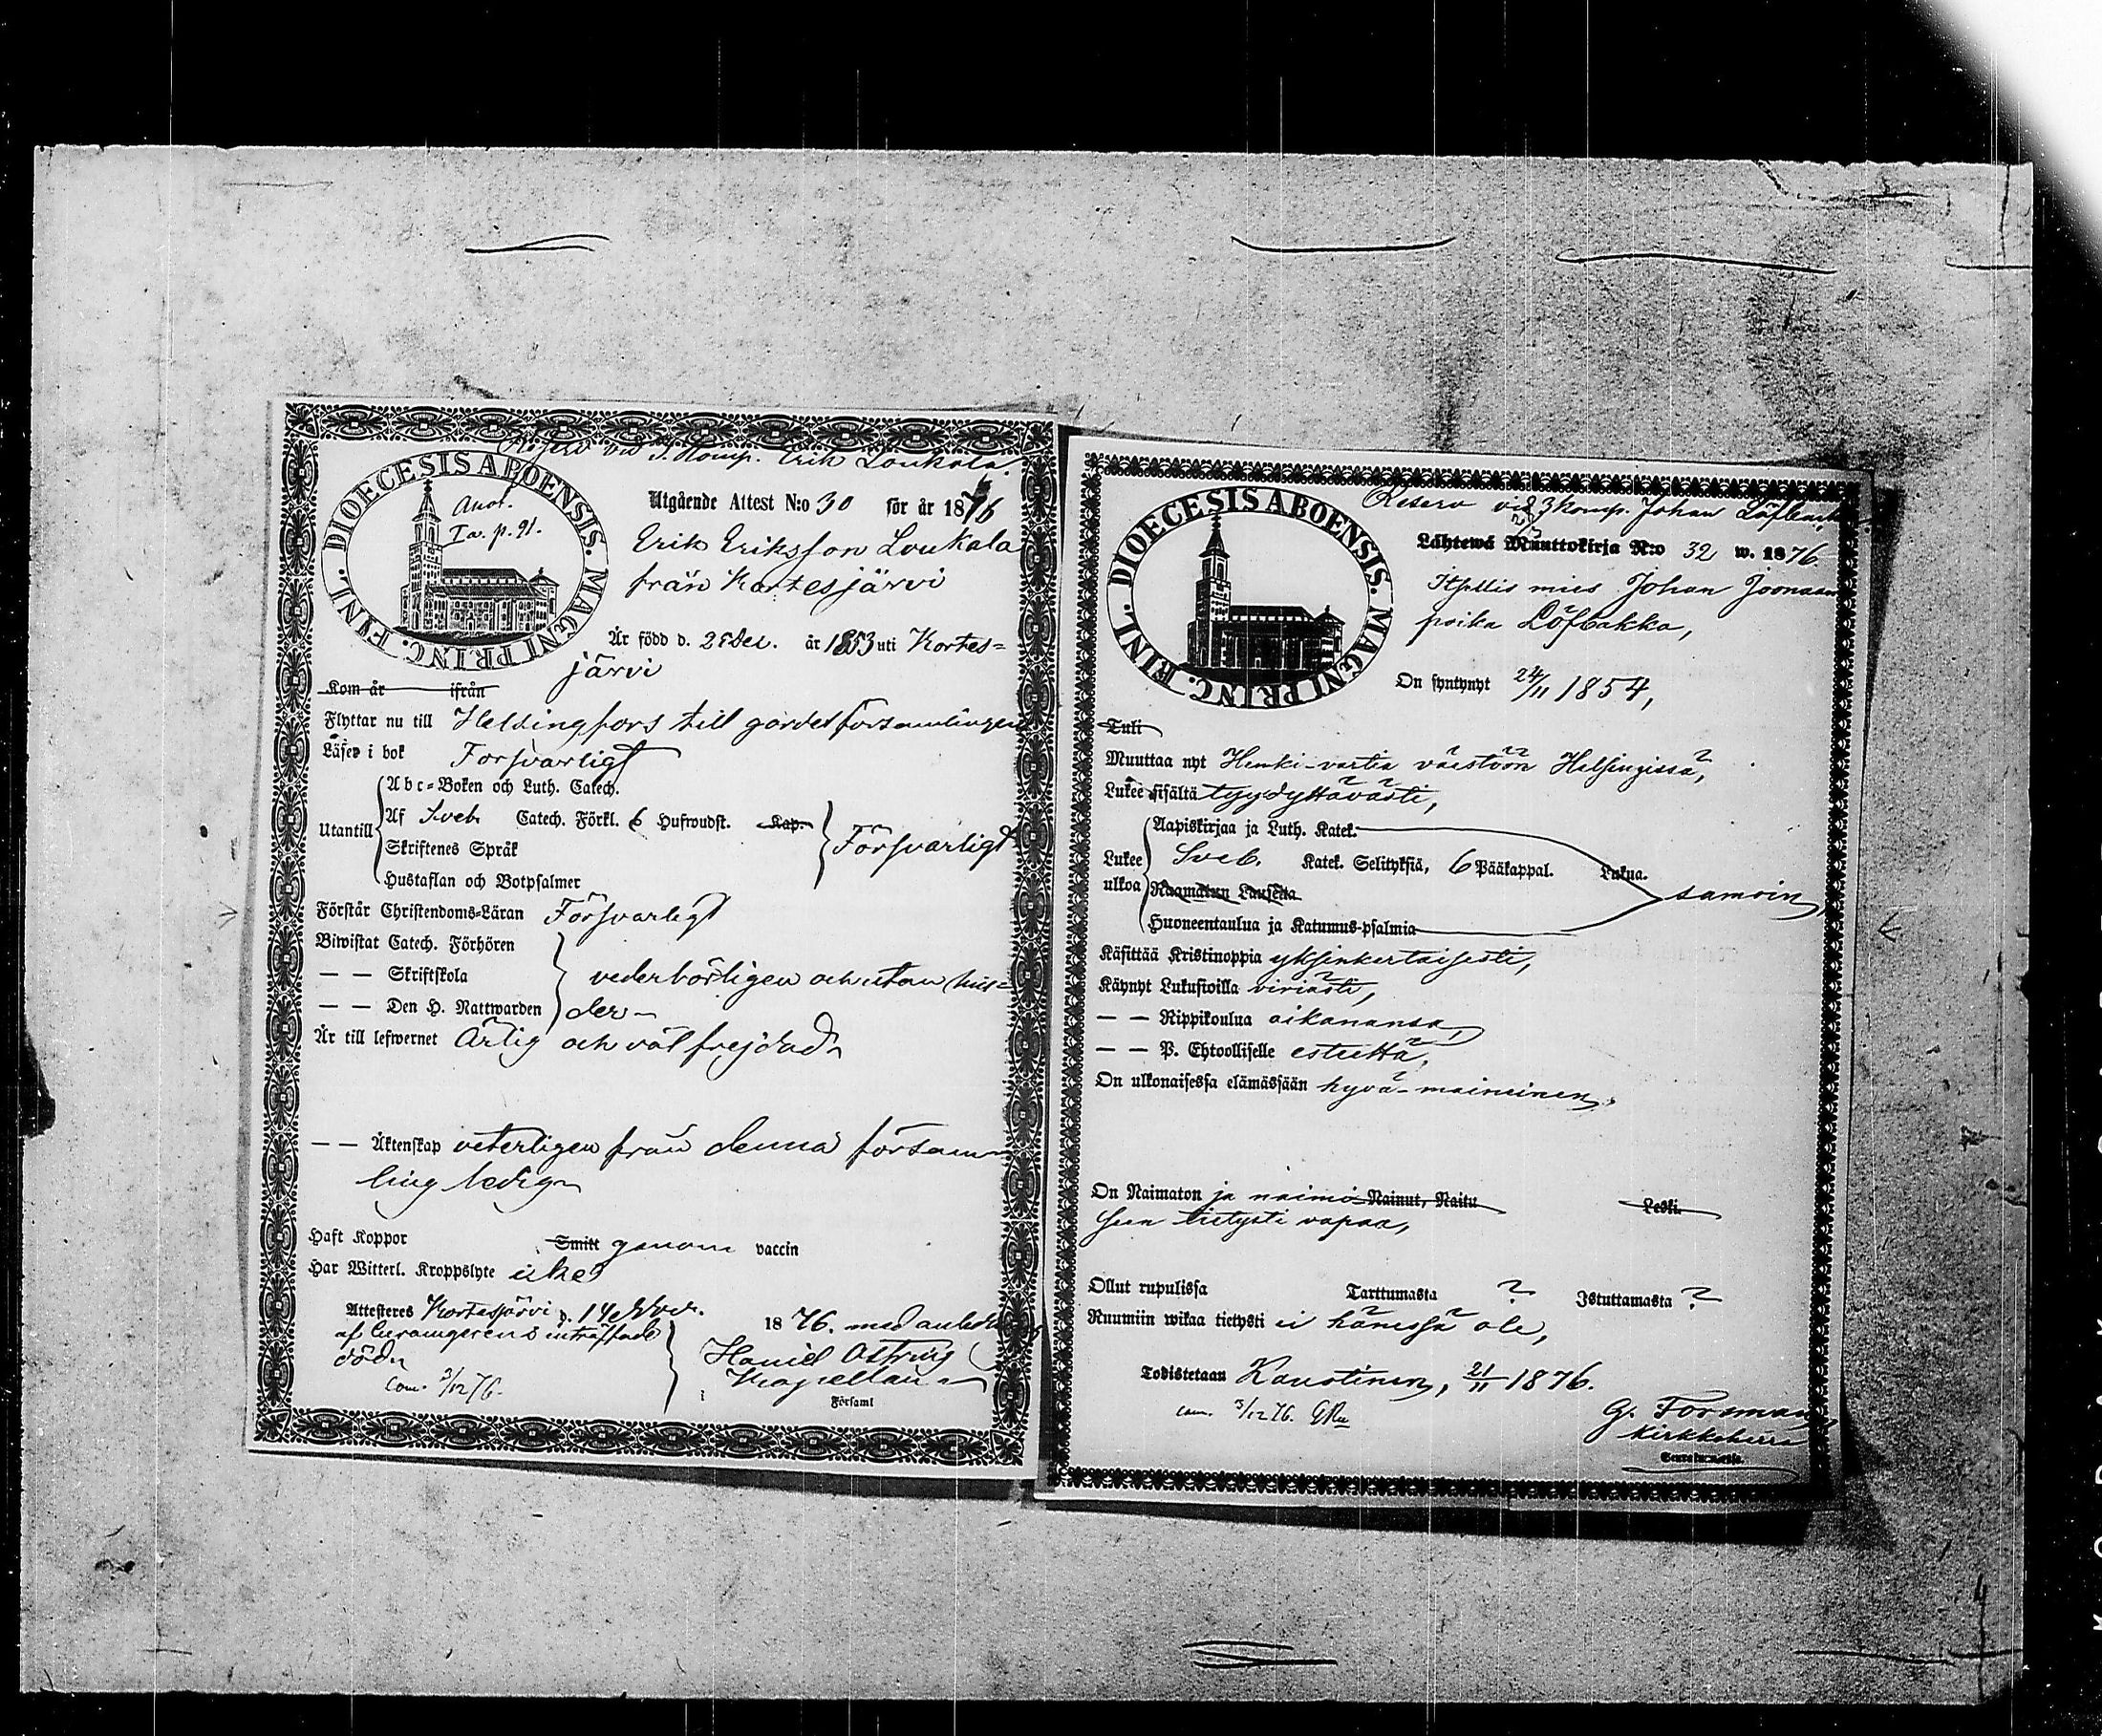 Reserv vid 3. Komp. Erik Loukola.
DIOECESIS ABOENSIS. MAGNI PRINC. FINL.
Anot.
I a. p. 91.
Utgående Attest N:o 30 för år 1876
Erik Eriksson Loukala
från Kortesjärvi
Är född d. 28 Dec. år 1853 uti Kortes=
järvi
Kom år ifrån
Flyttar nu till Helsingfors till gardesförsamlingen
Läser i bok Försvarligt
Utantill
Abc-Boken och Luth. Catech.
Af Sveb. Catech. Förkl. 6 Hufwudst. Kap.
Skriftenes Språk
Hustaflan och Botpsalmer
Försvarligt
Förstår Christendoms-Läran Försvarligt
Biwistat Catech. Förhören
— — Skriftskola vederbörligen och utan hin=
— — Den H. Nattwarden der
Är till lefwernet Ärlig och väl frejdad
— — Äktenskap veterligen från denna försam-
ling ledig
Haft Koppor Smitt genom vaccin
Har Witterl. Kroppslyte icke
Attesteres Kortesjärvi d. 14 Nov. 1876. med anledn
af inträffade
död
Kapellan
Com. 3/12 76.
Församl
Reserv vid 3 Komp. Johan Löfbacka
DIOECESIS ABOENSIS. MAGNI PRINC. FINL.
Lähtewä Muuttokirja N:o 32 w. 1876.
Itsellis mies Johan Joonaan
poika Löfbakka,
On syntynyt 24/11 1854,
Tuli
Muuttaa nyt Henki-vartia väestöön Helsingissä,
Lukee sisältä tyydyttävästi,
Lukee
ulkoa
Aapiskirjaa ja Luth. Katek.
Sveb. Katek. Selityksiä, 6 Pääkappal. Lukua.
Raamatun Lauseita
Huoneentaulua ja Katumus-psalmia
samoin,
Käsittää Kristinoppia yksinkertaisesti,
Käynyt Lukusioilla viriästi,
— — Rippikoulua aikanansa,
— — P. Ehtoolliselle esteettä,
On ulkonaisessa elämässään hyvä-maineinen,
On Naimaton ja naimi- Nainut, Naitu Leski
seen tietysti vapaa,
Ollut rupulissa Tarttumasta ? Istuttamasta ?
Ruumiin wikaa tietysti ei hänessä ole,
Todistetaan Kaustinen, 21/11 1876.
Com. 3/12 76.
G. Forsman
Kirkkoherra
Seurakunnassa.